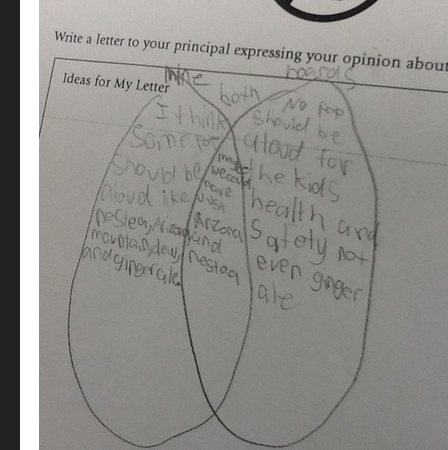 Write a letter to your principal expressing your opinion about
Ideas for My Letter
Mine
both
boards
I think
some pop
should be
aloud like
nestea, Arizona,
mountain dew,
and gingerale
maybe
we could
have
just
Arizona
and
nestea
No pop
should be
aloud for
the kids
health and
Safety not
even ginger
ale